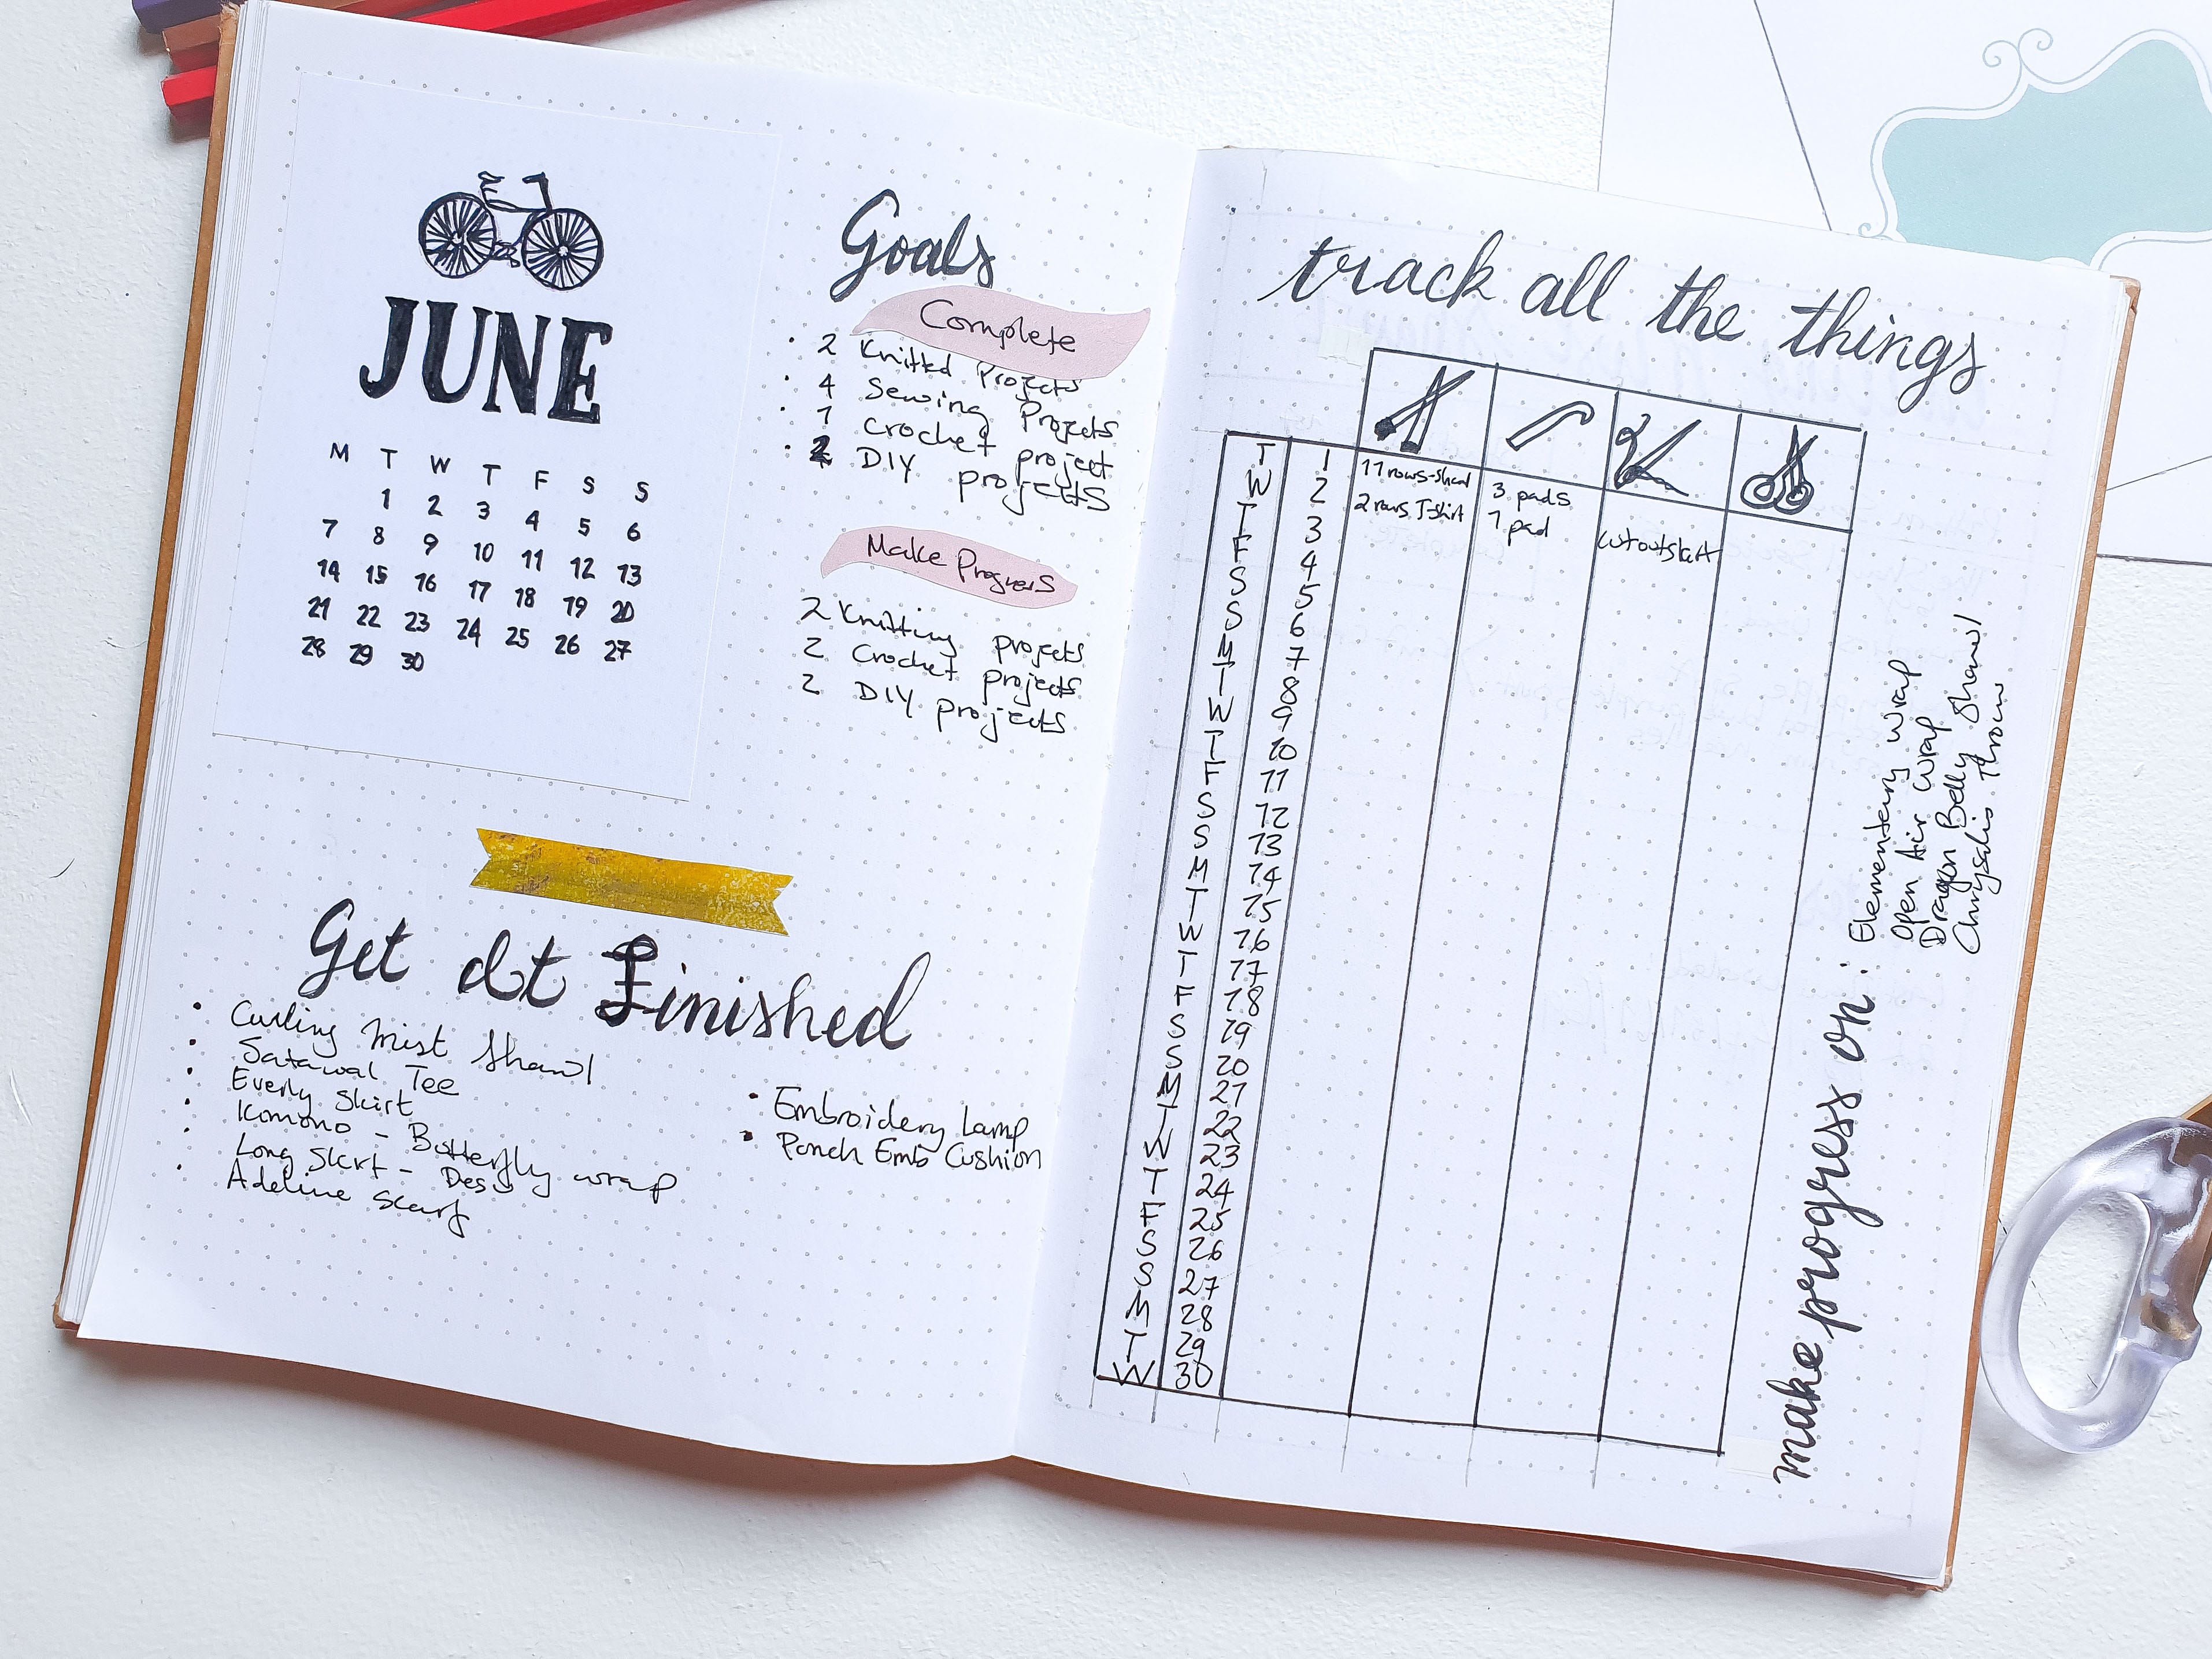 JUNE
M T W T F S S
1 2 3 4 5 6
7 8 9 10 11 12 13
14 15 16 17 18 19 20
21 22 23 24 25 26 27
28 29 30
Goals
Complete
• 2 Knitted Projects
• 4 Sewing Projects
• 1 Crochet project
• 2 DIY projects
Make Progress
2 Knitting projects
2 Crochet projects
2 DIY projects
Get It Finished
• Curling Mist Shawl
• Satawal Tee
• Everly Skirt
• Komono - Butterfly wrap
• Long Skirt - Des
• Adeline Scarf
• Embroidery Lamp
• Punch Emb Cushion
track all the things
T 1 11 rows-shawl
W 2 2 rows T-shirt 3 pads
T 3 1 pad cut out skirt
F 4
S 5
S 6
M 7
T 8
W 9
T 10
F 11
S 12
S 13
M 14
T 15
W 16
T 17
F 18
S 19
S 20
M 21
T 22
W 23
T 24
F 25
S 26
S 27
M 28
T 29
W 30
make progress on: Elementary Wrap
Open Air Wrap
Dragon Belly Shawl
Chrysalis Throw